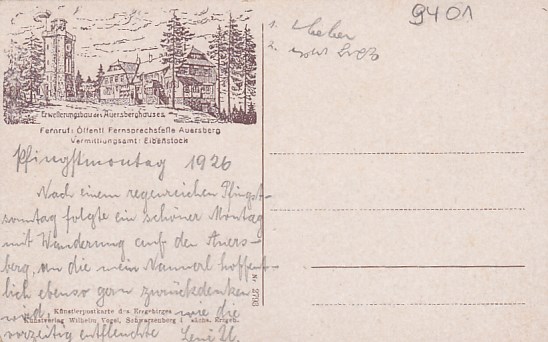 9401
1.
2.
Erweiterungsbau des Auersberghauses
Fernruf: Öffentl. Fernsprechstelle Auersberg
Vermittlungsamt: Eibenstock
Pfingstmontag 1926
Nach einem regenreichen Pfingst-
sonntag folgte ein schöner Montag
mit Wanderung auf den Auers-
berg, an die mein Mannerl hoffent-
lich ebenso gern zurückdenken
wird, wie die
vorzeitig entfleuchte Leni U.
Künstlerpostkarte des Erzgebirges
Kunstverlag Wilhelm Vogel, Schwarzenberg i. Sächs. Erzgeb.
Nr.